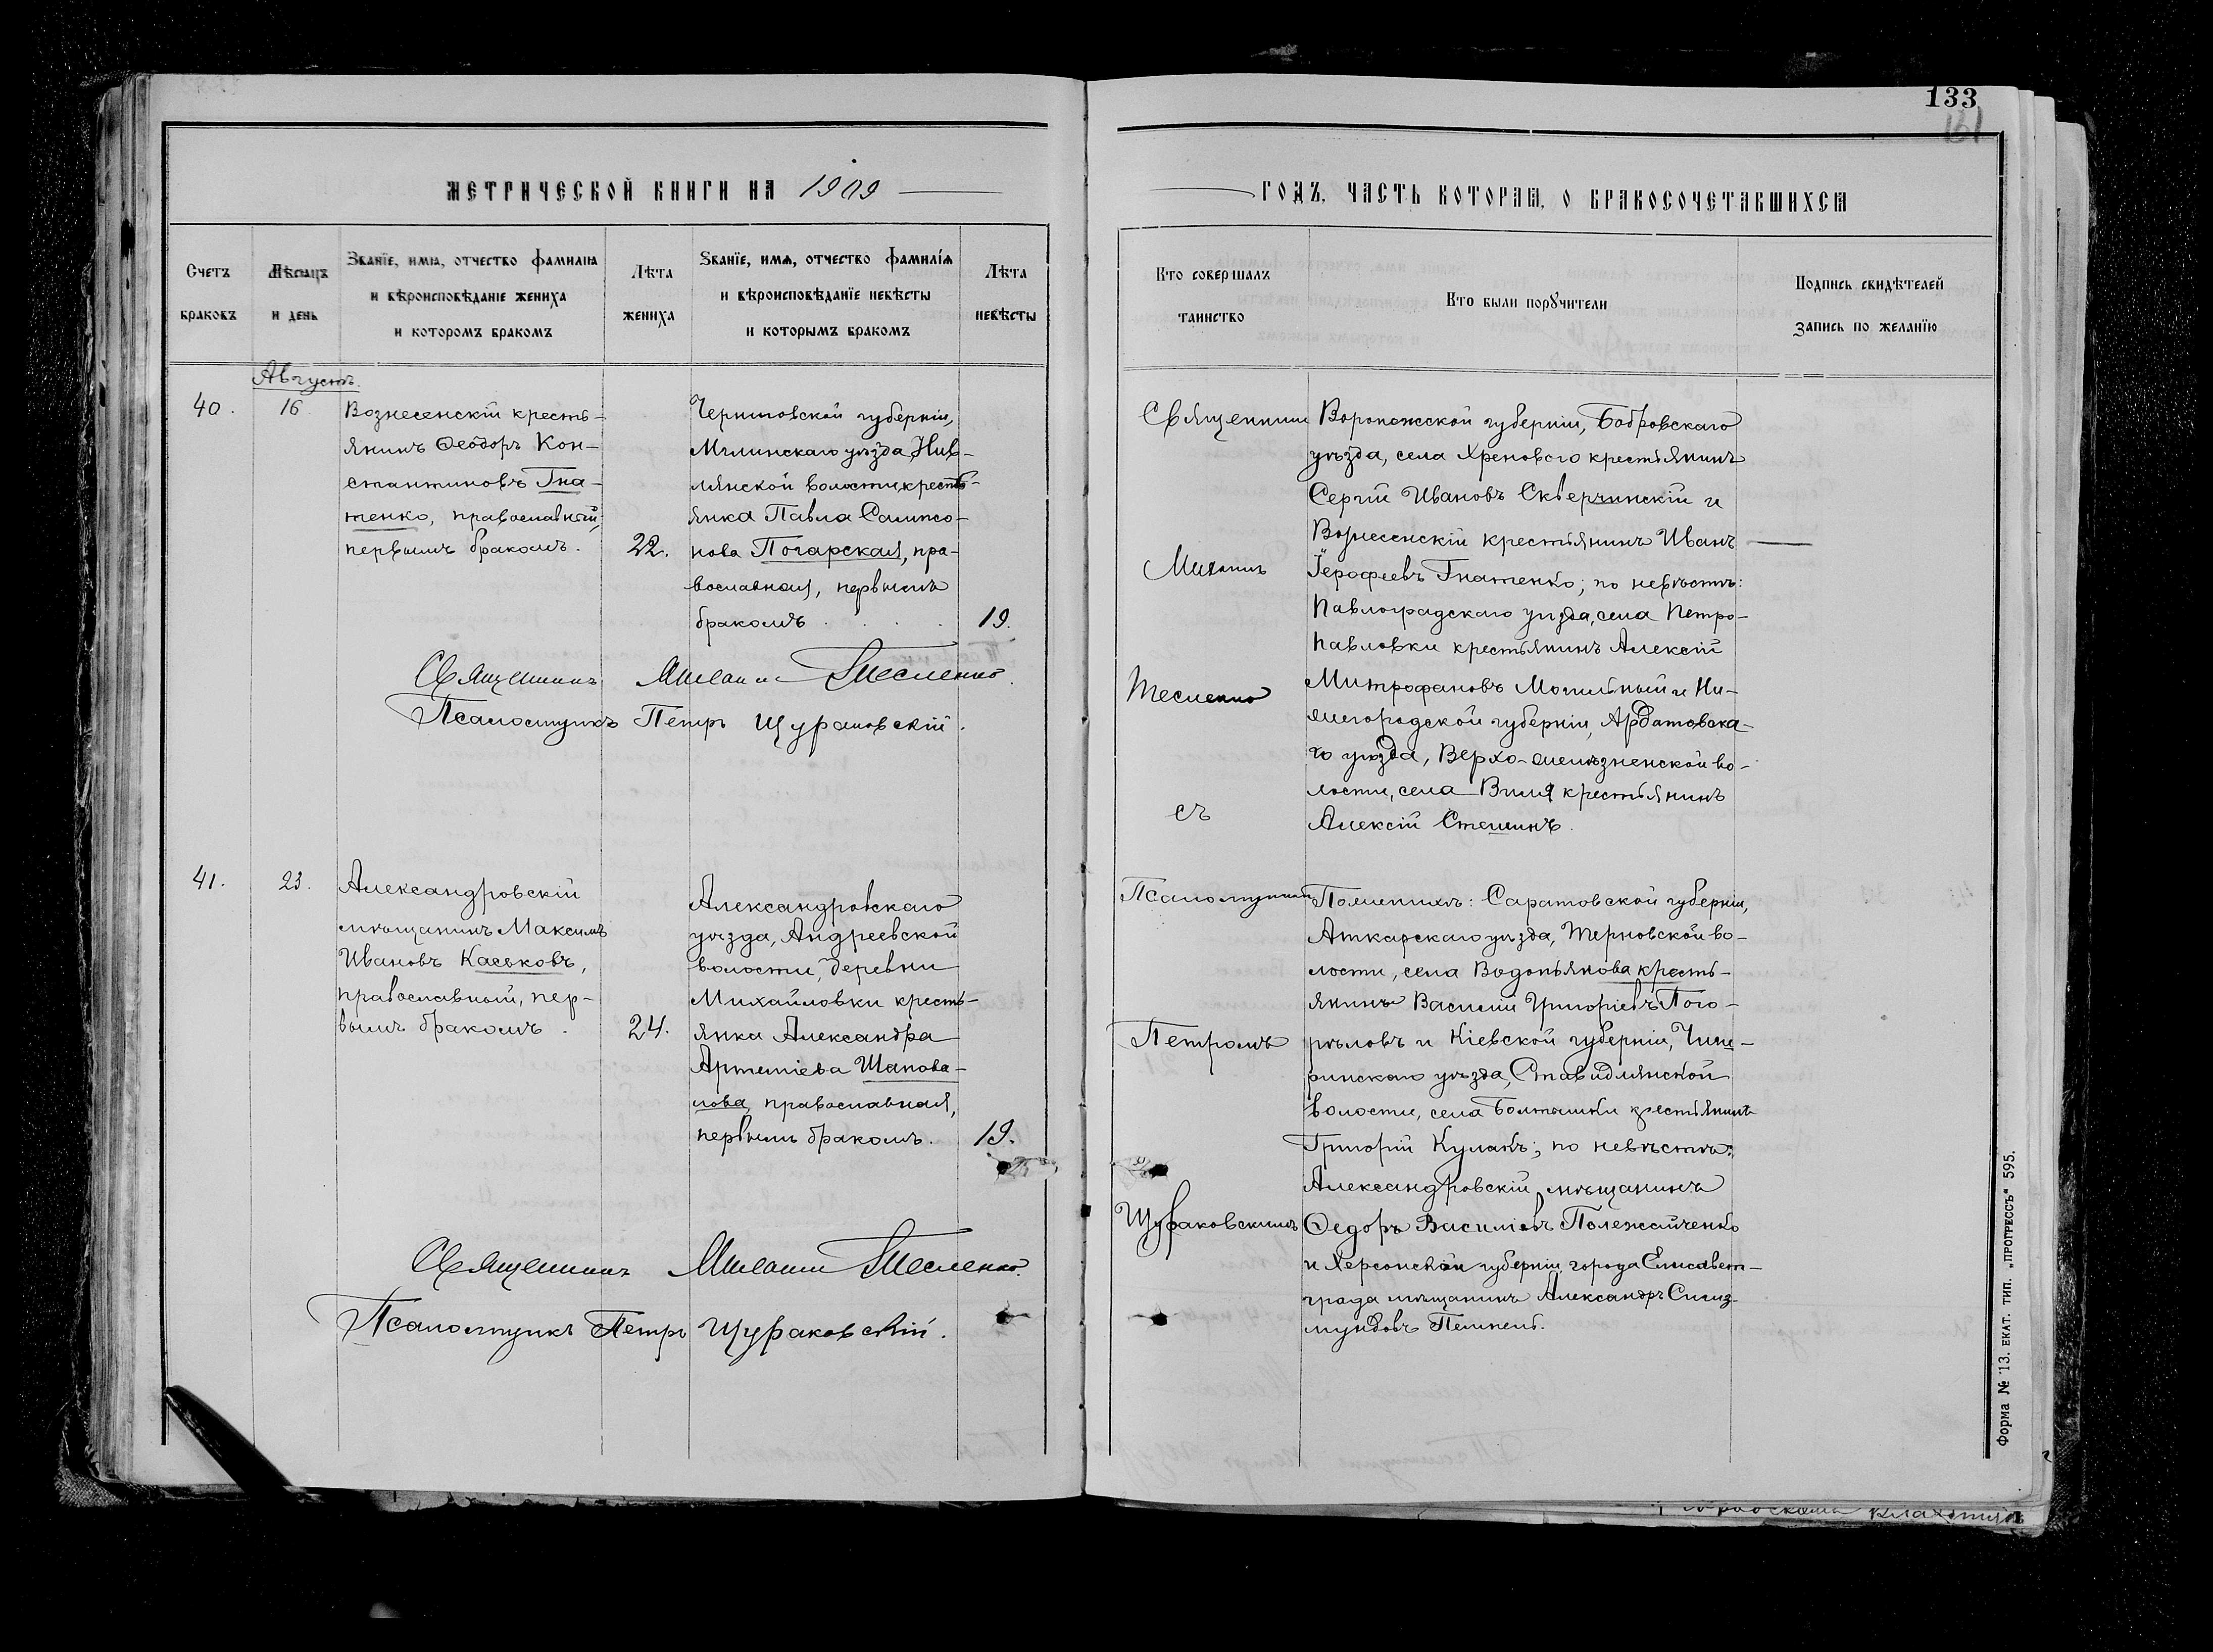 133
151
МЕТРИЧЕСКОЙ КНИГИ НА 1909
ГОДЪ, ЧАСТЬ ВТОРАЯ, О БРАКОСОЧЕТАВШИХСЯ
Счетъ браковъ
Мѣсяцъ и день
Званїе, имя, отчество фамилїя
и вѣроисповѣданїе жениха
и которомъ бракомъ
Лѣта жениха
Званїе, имя, отчество фамилїя
и вѣроисповѣданїе невѣсты
и которымъ бракомъ
Лѣта невѣсты
Кто совершалъ
таинство
Кто были порꙋчители
Подпись свидѣтелей
запись по желанїю
Августъ.
40.
16
Вознесенскій кресть-
янинъ Ѳеодоръ Кон-
стантиновъ Гна-
тенко, православный,
первымъ бракомъ.
22.
Черниговской губерніи,
Мглинскаго уѣзда, Нив-
лянской волости, кресть-
янка Павла Сампсо-
нова Погарская, пра-
вославная, первымъ
бракомъ
19.
Священникъ Михаилъ Тесленко.
Псаломщикъ Петръ Щураковскій.
41.
23.
Александровскій
мѣщанинъ Максимъ
Ивановъ Каськовъ,
православный, пер-
вымъ бракомъ.
24.
Александровскаго
уѣзда, Андреевской
волости, деревни
Михайловки кресть-
янка Александра
Артеміева Шапова-
лова, православная,
первымъ бракомъ.
19.
Священникъ Михаилъ Тесленко.
Псаломщикъ Петръ Щураковскій.
Священникъ
Михаилъ
Тесленко
съ
Псаломщикомъ
Петромъ
Щураковскимъ
Воронежской губерніи, Бобровскаго
уѣзда, села Хреноваго крестьянинъ
Сергій Ивановъ Скверчинскій и
Вознесенскій крестьянинъ Иванъ
Іерофеевъ Гнатенко; по невѣстѣ:
Павлоградскаго уѣзда, села Петро-
павловки крестьянинъ Алексій
Митрофановъ Могильный и Ни-
жегородской губерніи, Ардатовска-
го уѣзда, Верхо-железненской во-
лости, села Виля крестьянинъ
Алексій Стешинъ.
По женихѣ: Саратовской губерніи,
Аткарскаго уѣзда, Терновской во-
лости, села Водопьянова кресть-
янинъ Василій Григоріевъ Пого-
рѣловъ и Кіевской губерніи, Чиги-
ринскаго уѣзда, Ставидлянской
волости, села Болтышки крестьянинъ
Григорій Кулакъ; по невѣстѣ:
Александровскій мѣщанинъ
Ѳедоръ Василіевъ Полежайченко
и Херсонской губерніи, города Елисавет-
града мѣщанинъ Александръ Сигиз-
мундовъ
Форма № 13. ЕКАТ. ТИП. „ПРОГРЕССЪ" 595.